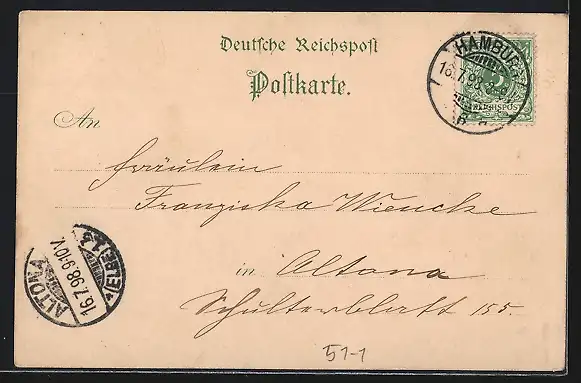 Deutsche Reichspost
Postkarte.
HAMBURG
16.7.98
REICHSPOST
An
Fräulein
Franziska Wiencke
in Altona
Schulterblatt 155.
ALTONA
16.7.98.9-10V.
(ELBE)
51-1